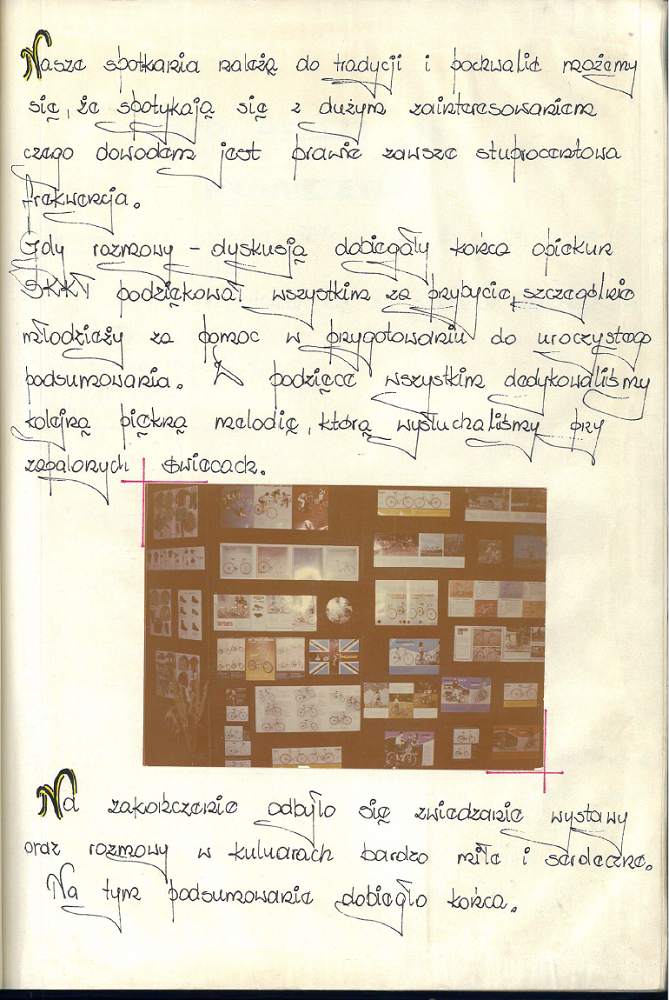 Nasze spotkania należą do tradycji i pochwalić możemy
się, że spotykają się z dużym zainteresowaniem
czego dowodem jest prawie zawsze stuprocentowa
frekwencja.
Gdy rozmowy – dyskusją dobiegały końca opiekun
SKKT podziękował wszystkim za przybycie, szczególnie
młodzieży za pomoc w przygotowaniu do uroczystego
podsumowania. W podzięce wszystkim dedykowaliśmy
kolejną piękną melodię, którą wysłuchaliśmy przy
zapalonych świecach.
Na zakończenie odbyło się zwiedzanie wystawy
oraz rozmowy w kuluarach bardzo miłe i serdeczne.
Na tym podsumowanie dobiegło końca.